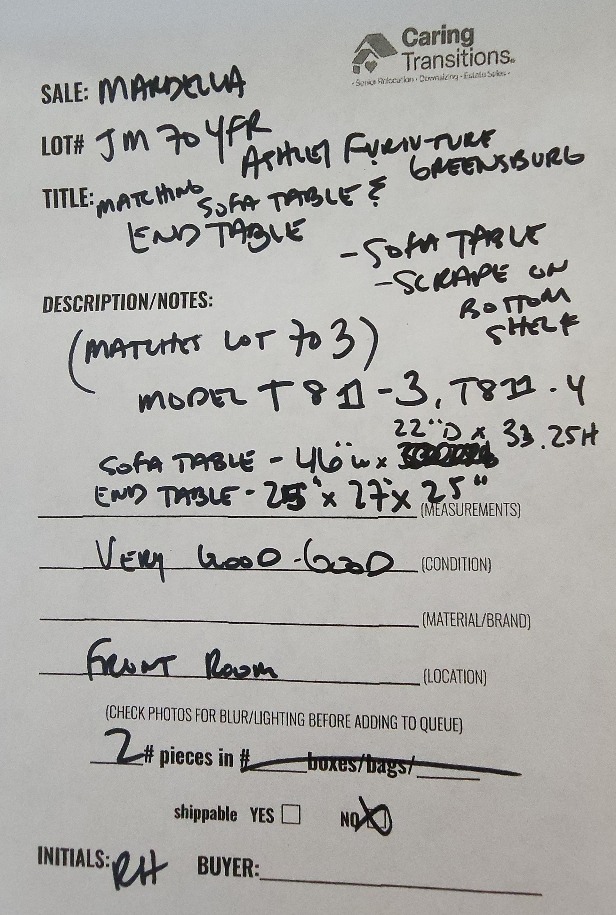 Caring
Transitions®
- Senior Relocation • Downsizing • Estate Sales -
SALE: MARDELLA
LOT# JM704FR
ASHLEY FURNITURE
GREENSBURG
TITLE: MATCHING
SOFA TABLE &
END TABLE
- SOFA TABLE
- SCRAPE ON
BOTTOM
SHELF
DESCRIPTION/NOTES:
(MATCHES LOT 703)
MODEL T811-3, T811-4
22"D x 33.25H
SOFA TABLE - 46"W x
END TABLE - 25" x 27" x 25"
(MEASUREMENTS)
VERY GOOD - GOOD (CONDITION)
(MATERIAL/BRAND)
FRONT ROOM (LOCATION)
(CHECK PHOTOS FOR BLUR/LIGHTING BEFORE ADDING TO QUEUE)
2 # pieces in # boxes/bags/
shippable YES NO
INITIALS: RH BUYER: